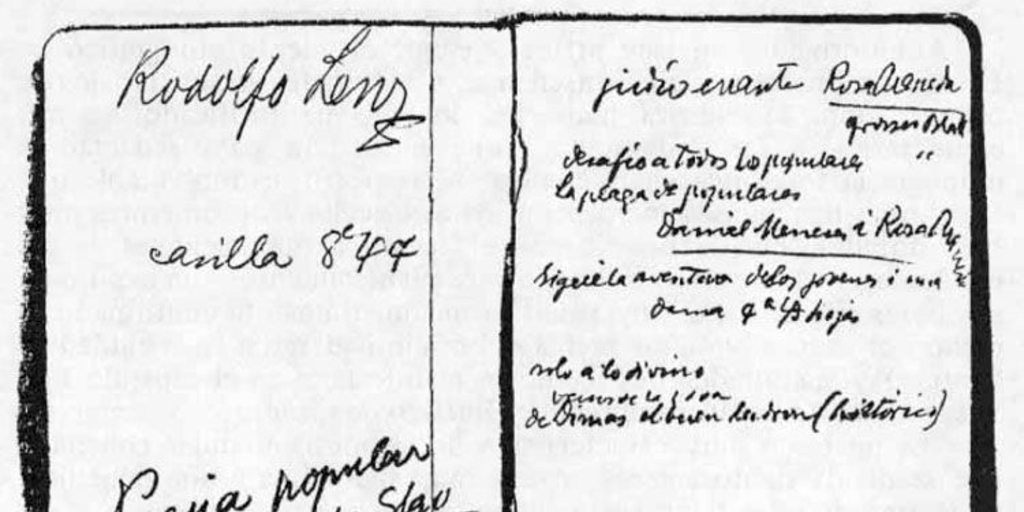 Rodolfo Lenz
casilla 844
Poesia popular
judío errante Rosa Araneda
desafio a todos lo populares
la plaga de populares
Daniel Meneses i Rosa
Sigue la aventura de los jovenes i una
dama 4ª hoja
solo a lo divino
versos de la
de Dimas el buen ladron (histórico)